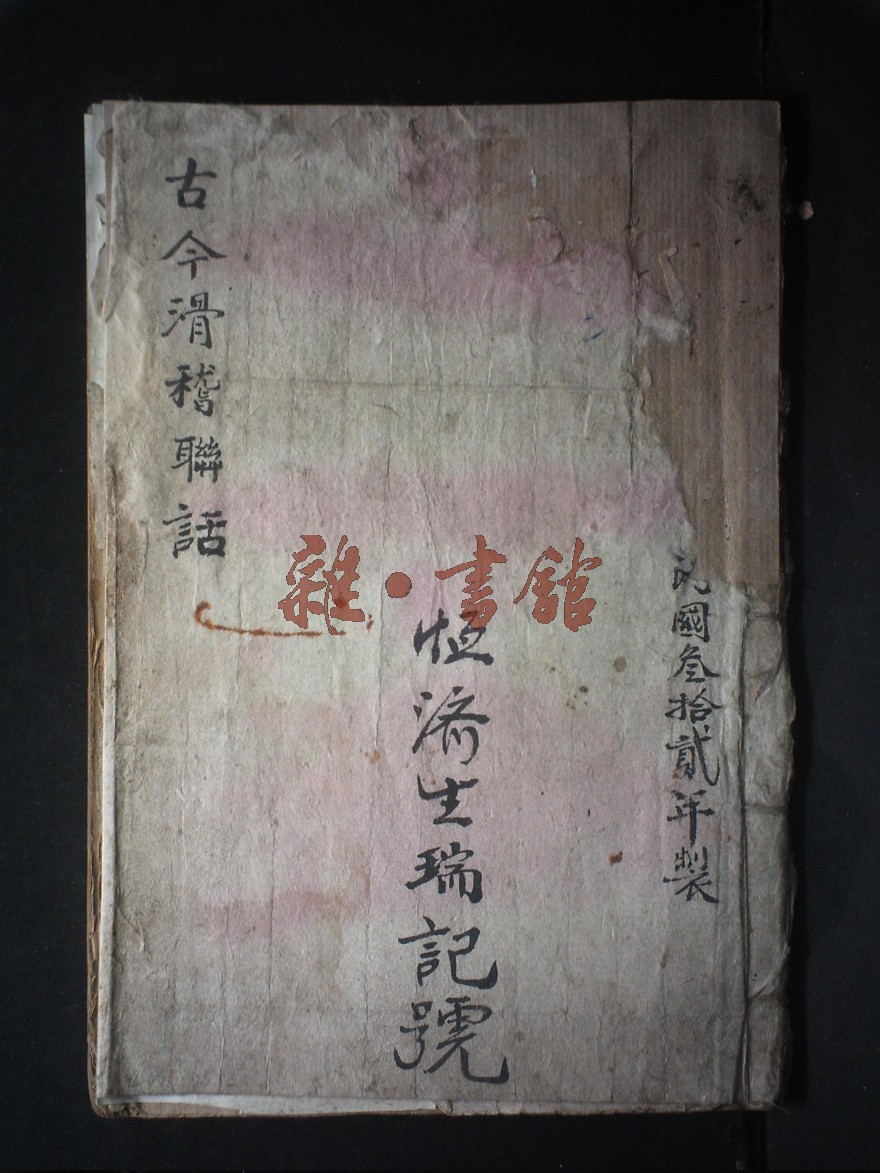 民國叁拾貳年製
恒濟生瑞記號
古今滑稽聯話
雜·書館